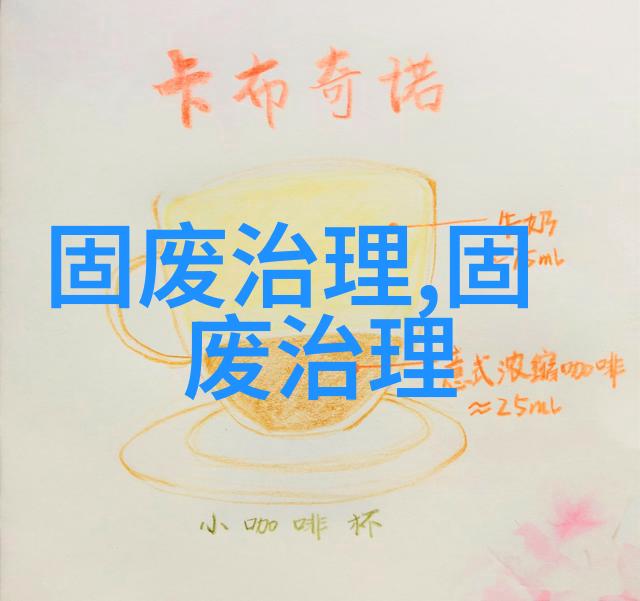 卡布奇诺
牛奶
固废治理,固
废治理
意式浓缩咖啡
≈25mL
小咖啡杯